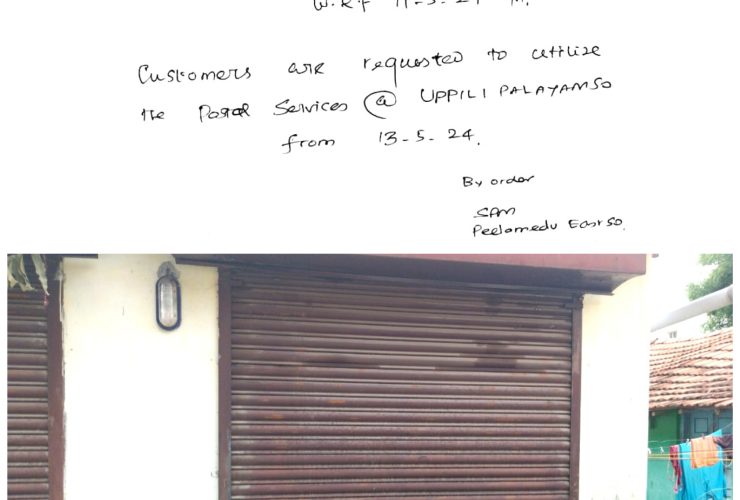 W.e.f 11-5-24
Customers are requested to utilize
the Postal Services @ UPPILIPALAYAM SO
from 13-5-24.
By order
SPM
Peelamedu East SO.